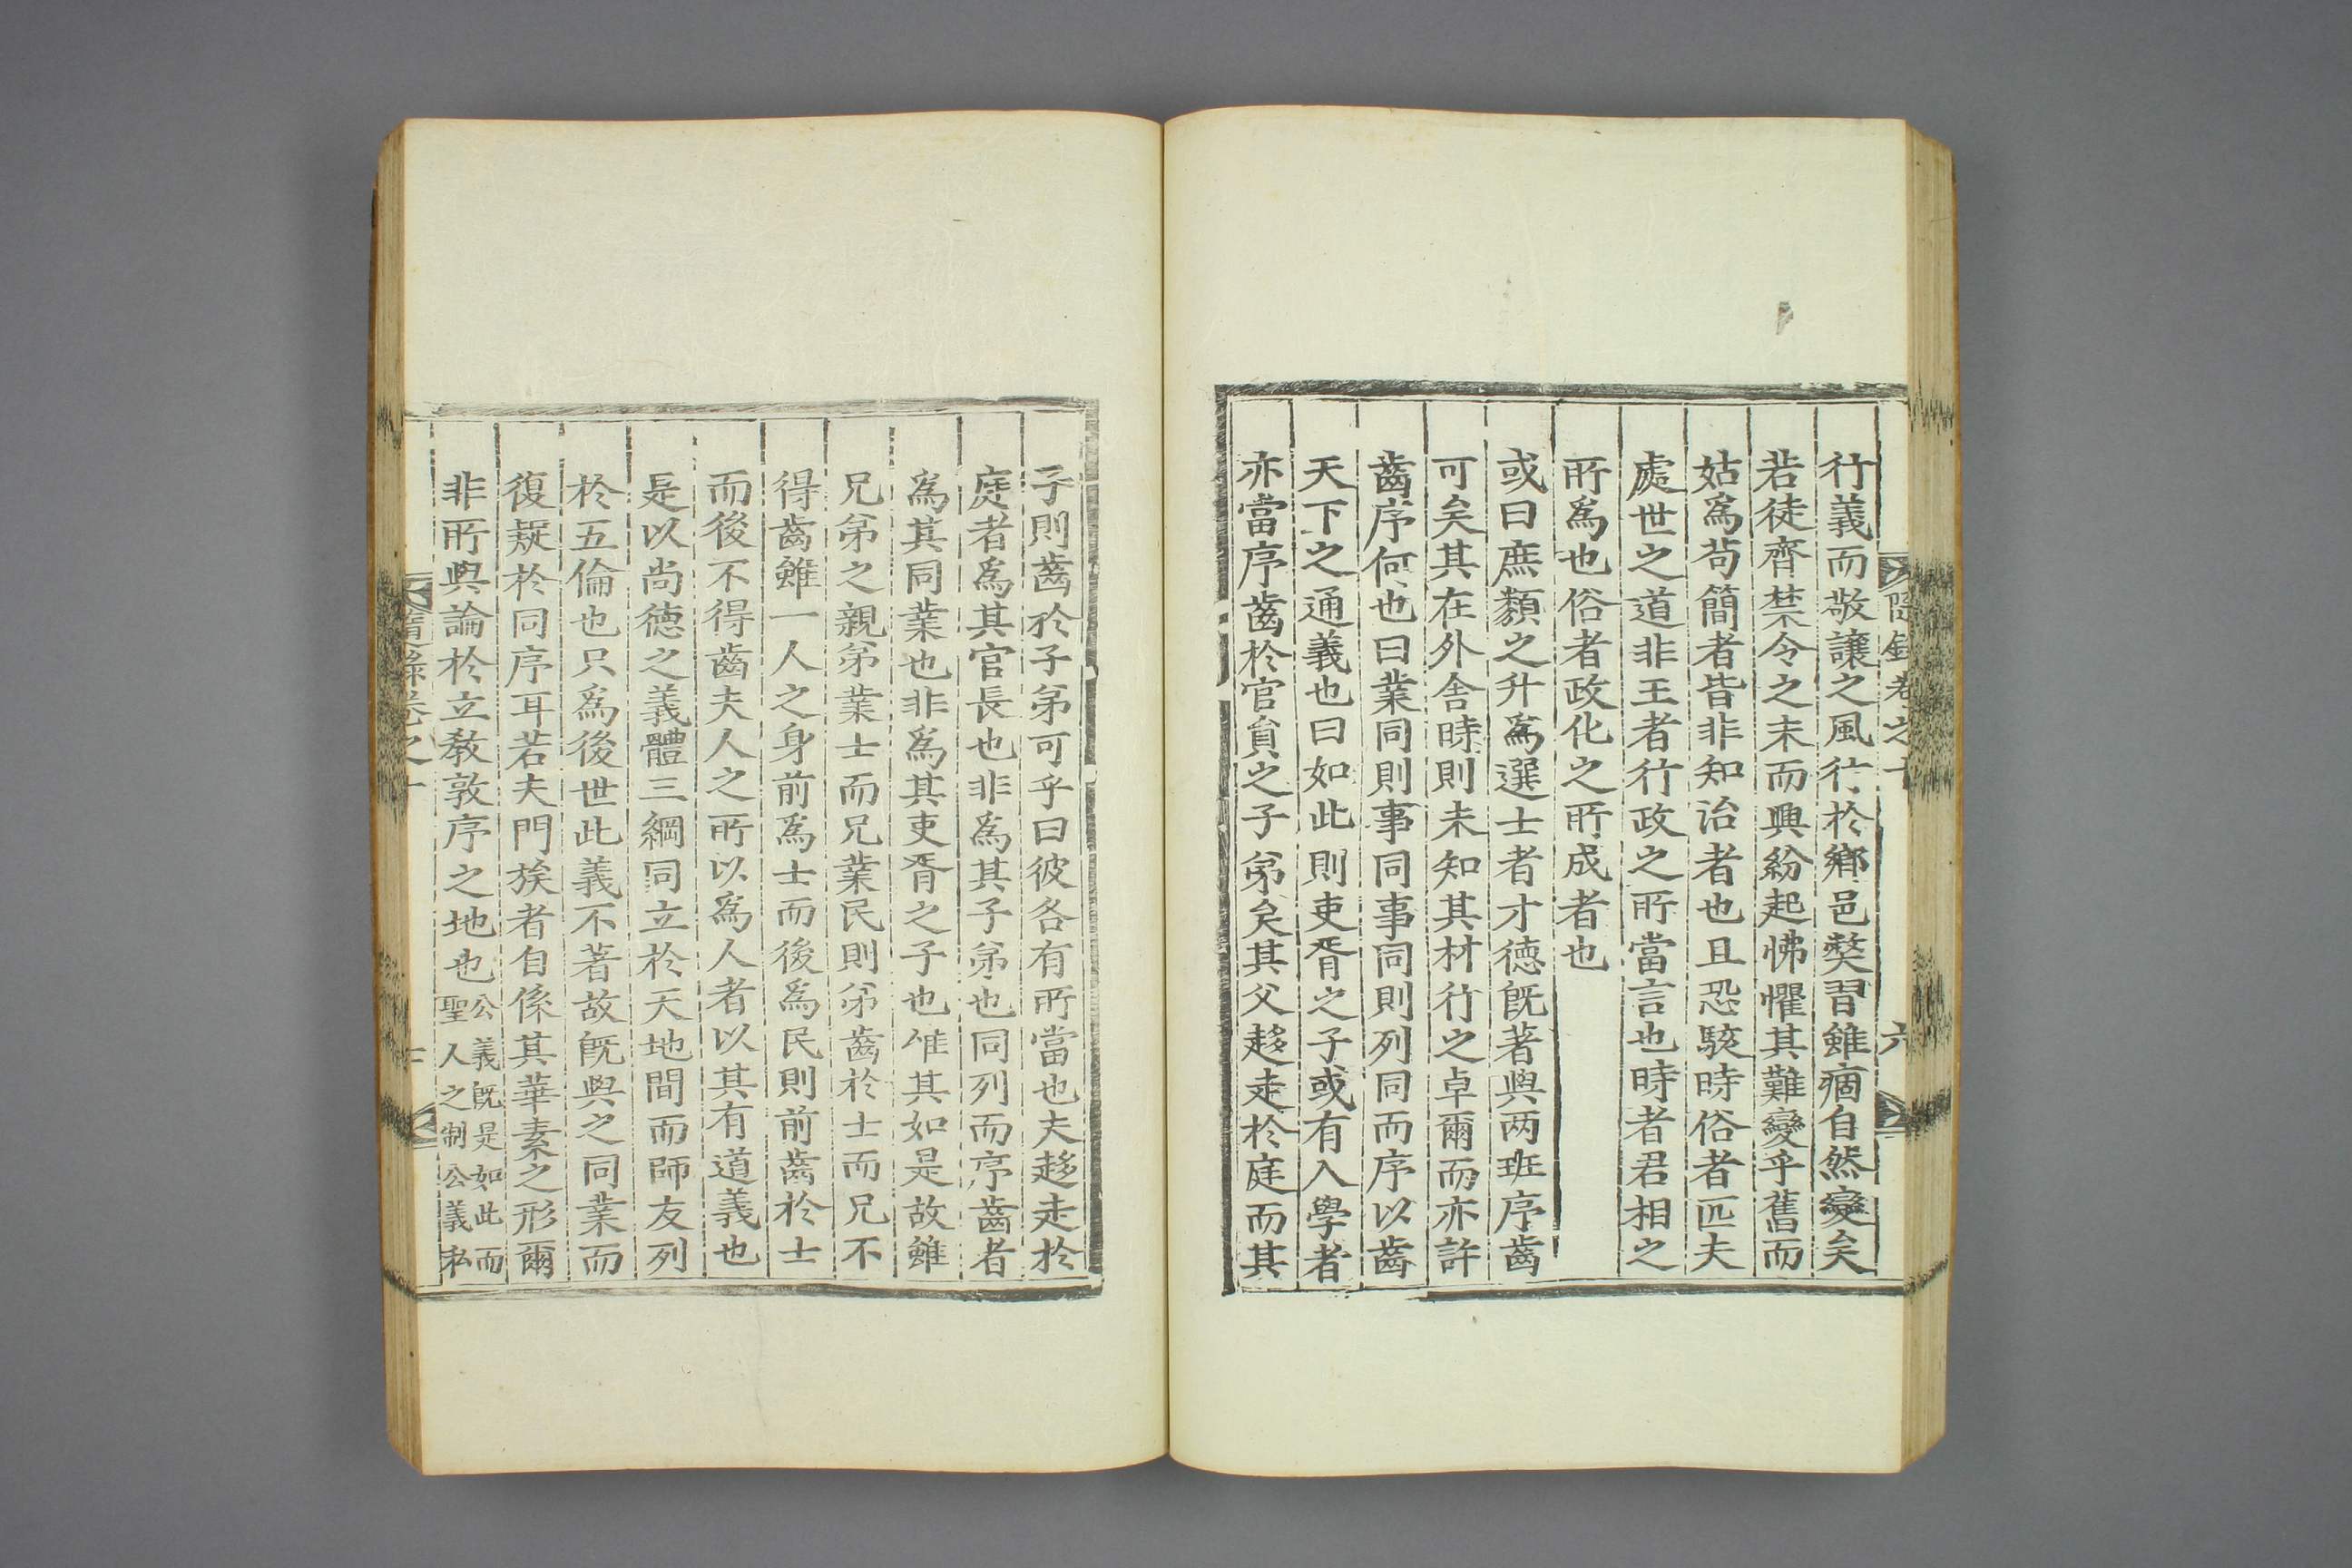 行義而敬讓之風行於鄉邑獘習雖痼自然變矣
若徒齊禁令之末而興紛起怫懼其難變乎舊而
姑爲苟簡者皆非知治者也且恐駭時俗者匹夫
處世之道非王者行政之所當言也時者君相之
所爲也俗者政化之所成者也
或曰庶類之升爲選士者才德旣著與兩班序齒
可矣其在外舍時則未知其材行之卓爾而亦許
齒序何也曰業同則事同事同則列同而序以齒
天下之通義也曰如此則吏胥之子或有入學者
亦當序齒於官員之子弟矣其父趍走於庭而其
子則齒於子弟可乎曰彼各有所當也夫趍走於
庭者爲其官長也非爲其子弟也同列而序齒者
爲其同業也非爲其吏胥之子也惟其如是故雖
兄弟之親弟業士而兄業民則弟齒於士而兄不
得齒雖一人之身前爲士而後爲民則前齒於士
而後不得齒夫人之所以爲人者以其有道義也
是以尚德之義體三綱同立於天地間而師友列
於五倫也只爲後世此義不著故旣與之同業而
復疑於同序耳若夫門族者自係其華素之形爾
非所與論於立教敦序之地也
公義旣是如此而
聖人之制公義私
隨錄卷之十
六
隨錄卷之十
七